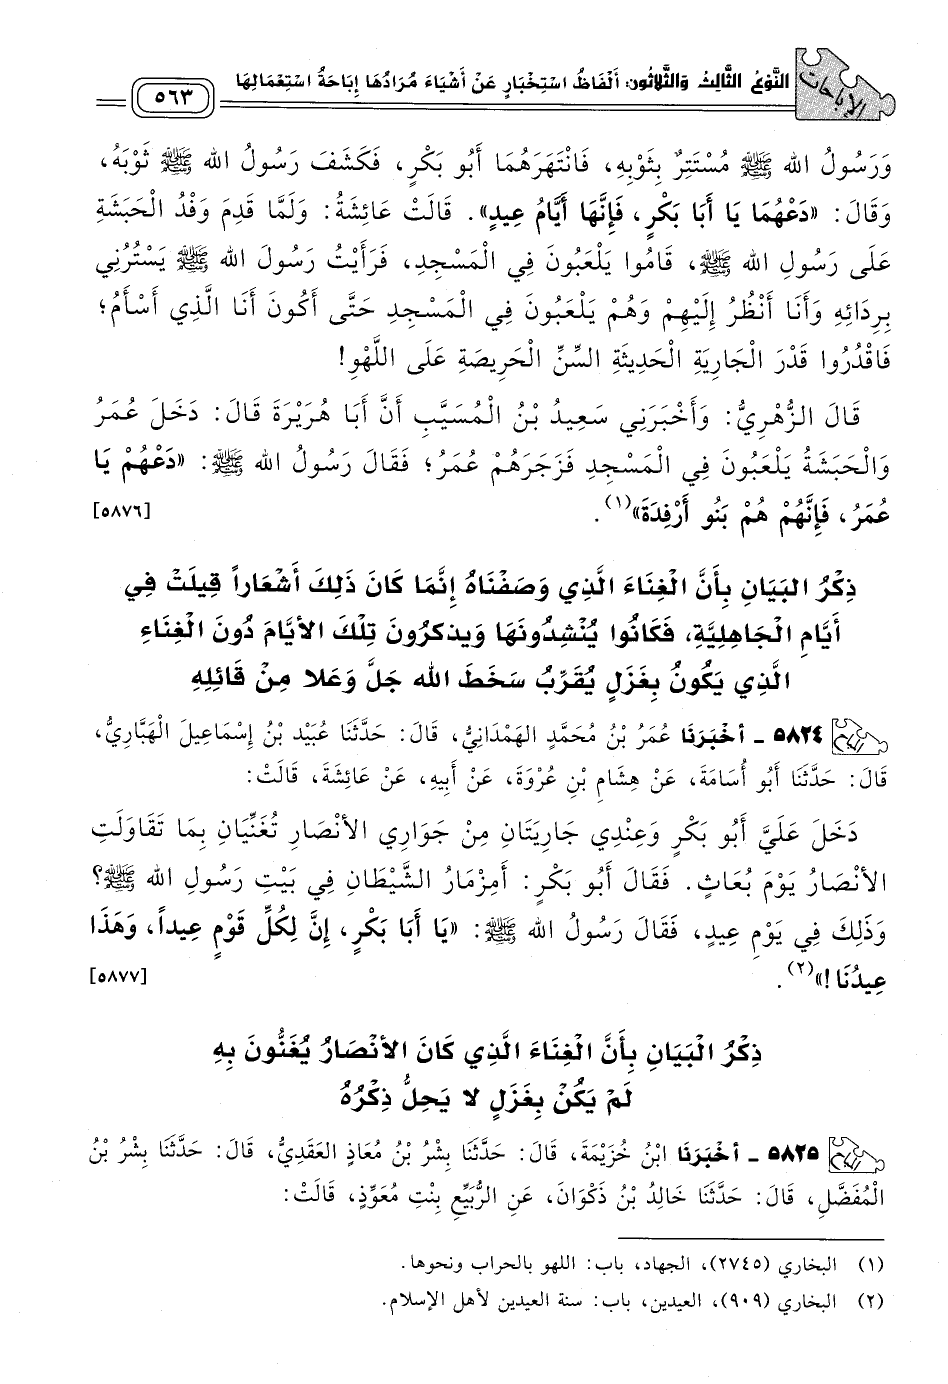 الإباحات
النَّوْعُ الثَّالِثُ وَالثَّلاثُون: أَلْفَاظُ اسْتِخْبَارٍ عَنْ أَشْيَاءَ مُرَادُهَا إِبَاحَةُ اسْتِعْمَالِهَا
٥٦٣
وَرَسُولُ الله ﷺ مُسْتَتِرٌ بِثَوْبِهِ، فَانْتَهَرَهُمَا أَبُو بَكْرٍ، فَكَشَفَ رَسُولُ الله ﷺ ثَوْبَهُ،
وَقَالَ: «دَعْهُمَا يَا أَبَا بَكْرٍ، فَإِنَّهَا أَيَّامُ عِيدٍ». قَالَتْ عَائِشَةُ: وَلَمَّا قَدِمَ وَفْدُ الْحَبَشَةِ
عَلَى رَسُولِ الله ﷺ، قَامُوا يَلْعَبُونَ فِي الْمَسْجِدِ، فَرَأَيْتُ رَسُولَ الله ﷺ يَسْتُرُنِي
بِرِدَائِهِ وَأَنَا أَنْظُرُ إِلَيْهِمْ وَهُمْ يَلْعَبُونَ فِي الْمَسْجِدِ حَتَّى أَكُونَ أَنَا الَّذِي أَسْأَمُ؛
فَاقْدُرُوا قَدْرَ الْجَارِيَةِ الْحَدِيثَةِ السِّنِّ الْحَرِيصَةِ عَلَى اللَّهْوِ!
قَالَ الزُّهْرِيُّ: وَأَخْبَرَنِي سَعِيدُ بْنُ الْمُسَيَّبِ أَنَّ أَبَا هُرَيْرَةَ قَالَ: دَخَلَ عُمَرُ
وَالْحَبَشَةُ يَلْعَبُونَ فِي الْمَسْجِدِ فَزَجَرَهُمْ عُمَرُ؛ فَقَالَ رَسُولُ الله ﷺ: «دَعْهُمْ يَا
عُمَرُ، فَإِنَّهُمْ هُمْ بَنُو أَرْفِدَةَ»(١). [٥٨٧٦]
ذِكْرُ البَيَانِ بِأَنَّ الْغِنَاءَ الَّذِي وَصَفْنَاهُ إِنَّمَا كَانَ ذَلِكَ أَشْعَاراً قِيلَتْ فِي
أَيَّامِ الْجَاهِلِيَّةِ، فَكَانُوا يُنْشِدُونَهَا وَيذكرُونَ تِلْكَ الأَيَّامَ دُونَ الْغِنَاءِ
الَّذِي يَكُونُ بِغَزَلٍ يُقَرِّبُ سَخَطَ الله جَلَّ وَعَلا مِنْ قَائِلِهِ
٥٨٢٤ - أخْبَرَنَا عُمَرُ بْنُ مُحَمَّدٍ الهَمْدَانِيُّ، قَالَ: حَدَّثَنَا عُبَيْد بْنُ إِسْمَاعِيلَ الْهَبَّارِيُّ،
قَالَ: حَدَّثَنَا أَبُو أُسَامَةَ، عَنْ هِشَامِ بْنِ عُرْوَةَ، عَنْ أَبِيهِ، عَنْ عَائِشَةَ، قَالَتْ:
دَخَلَ عَلَيَّ أَبُو بَكْرٍ وَعِنْدِي جَارِيَتَانِ مِنْ جَوَارِي الأَنْصَارِ تُغَنِّيَانِ بِمَا تَقَاوَلَتِ
الأَنْصَارُ يَوْمَ بُعَاثٍ. فَقَالَ أَبُو بَكْرٍ: أَمِزْمَارُ الشَّيْطَانِ فِي بَيْتِ رَسُولِ الله ﷺ؟
وَذَلِكَ فِي يَوْمِ عِيدٍ، فَقَالَ رَسُولُ الله ﷺ: «يَا أَبَا بَكْرٍ، إِنَّ لِكُلِّ قَوْمٍ عِيداً، وَهَذَا
عِيدُنَا!»(٢). [٥٨٧٧]
ذِكْرُ الْبَيَانِ بِأَنَّ الْغِنَاءَ الَّذِي كَانَ الأَنْصَارُ يُغَنُّونَ بِهِ
لَمْ يَكُنْ بِغَزَلٍ لا يَحِلُّ ذِكْرُهُ
٥٨٢٥ - أخْبَرَنَا ابْنُ خُزَيْمَةَ، قَالَ: حَدَّثَنَا بِشْرُ بْنُ مُعَاذٍ العَقَدِيُّ، قَالَ: حَدَّثَنَا بِشْرُ بْنُ
الْمُفَضَّلِ، قَالَ: حَدَّثَنَا خَالِدُ بْنُ ذَكْوَانَ، عَنِ الرُّبَيِّعِ بِنْتِ مُعَوِّذٍ، قَالَتْ:
(١) البخاري (٢٧٤٥)، الجهاد، باب: اللهو بالحراب ونحوها.
(٢) البخاري (٩٠٩)، العيدين، باب: سنة العيدين لأهل الإسلام.